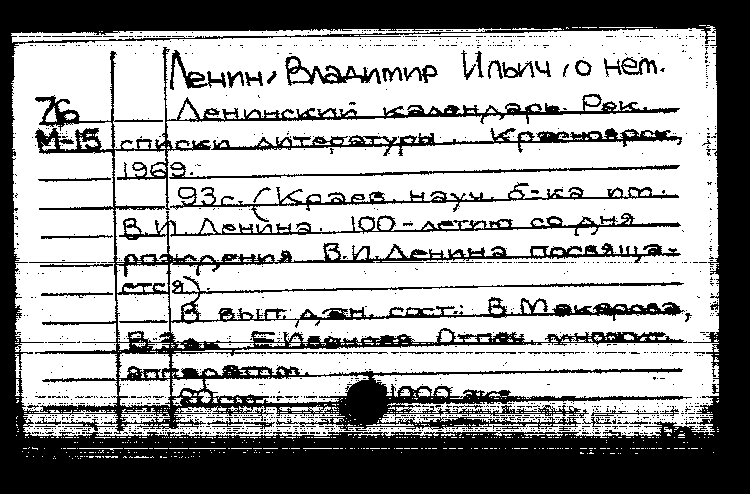 Ленин, Владимир Ильич, о нем.
76 Ленинский календарь. Рек.
М-15 списки литературы. Красноярск,
1969.
93с. (Краев. науч. б-ка им.
В.И. Ленина. 100-летию со дня
рождения В.И. Ленина посвяща-
ется).
В вып. дан. сост.: В. Макарова,
В. Зак, Иванова Отпеч. множит.
аппаратом.
20 1000 экз